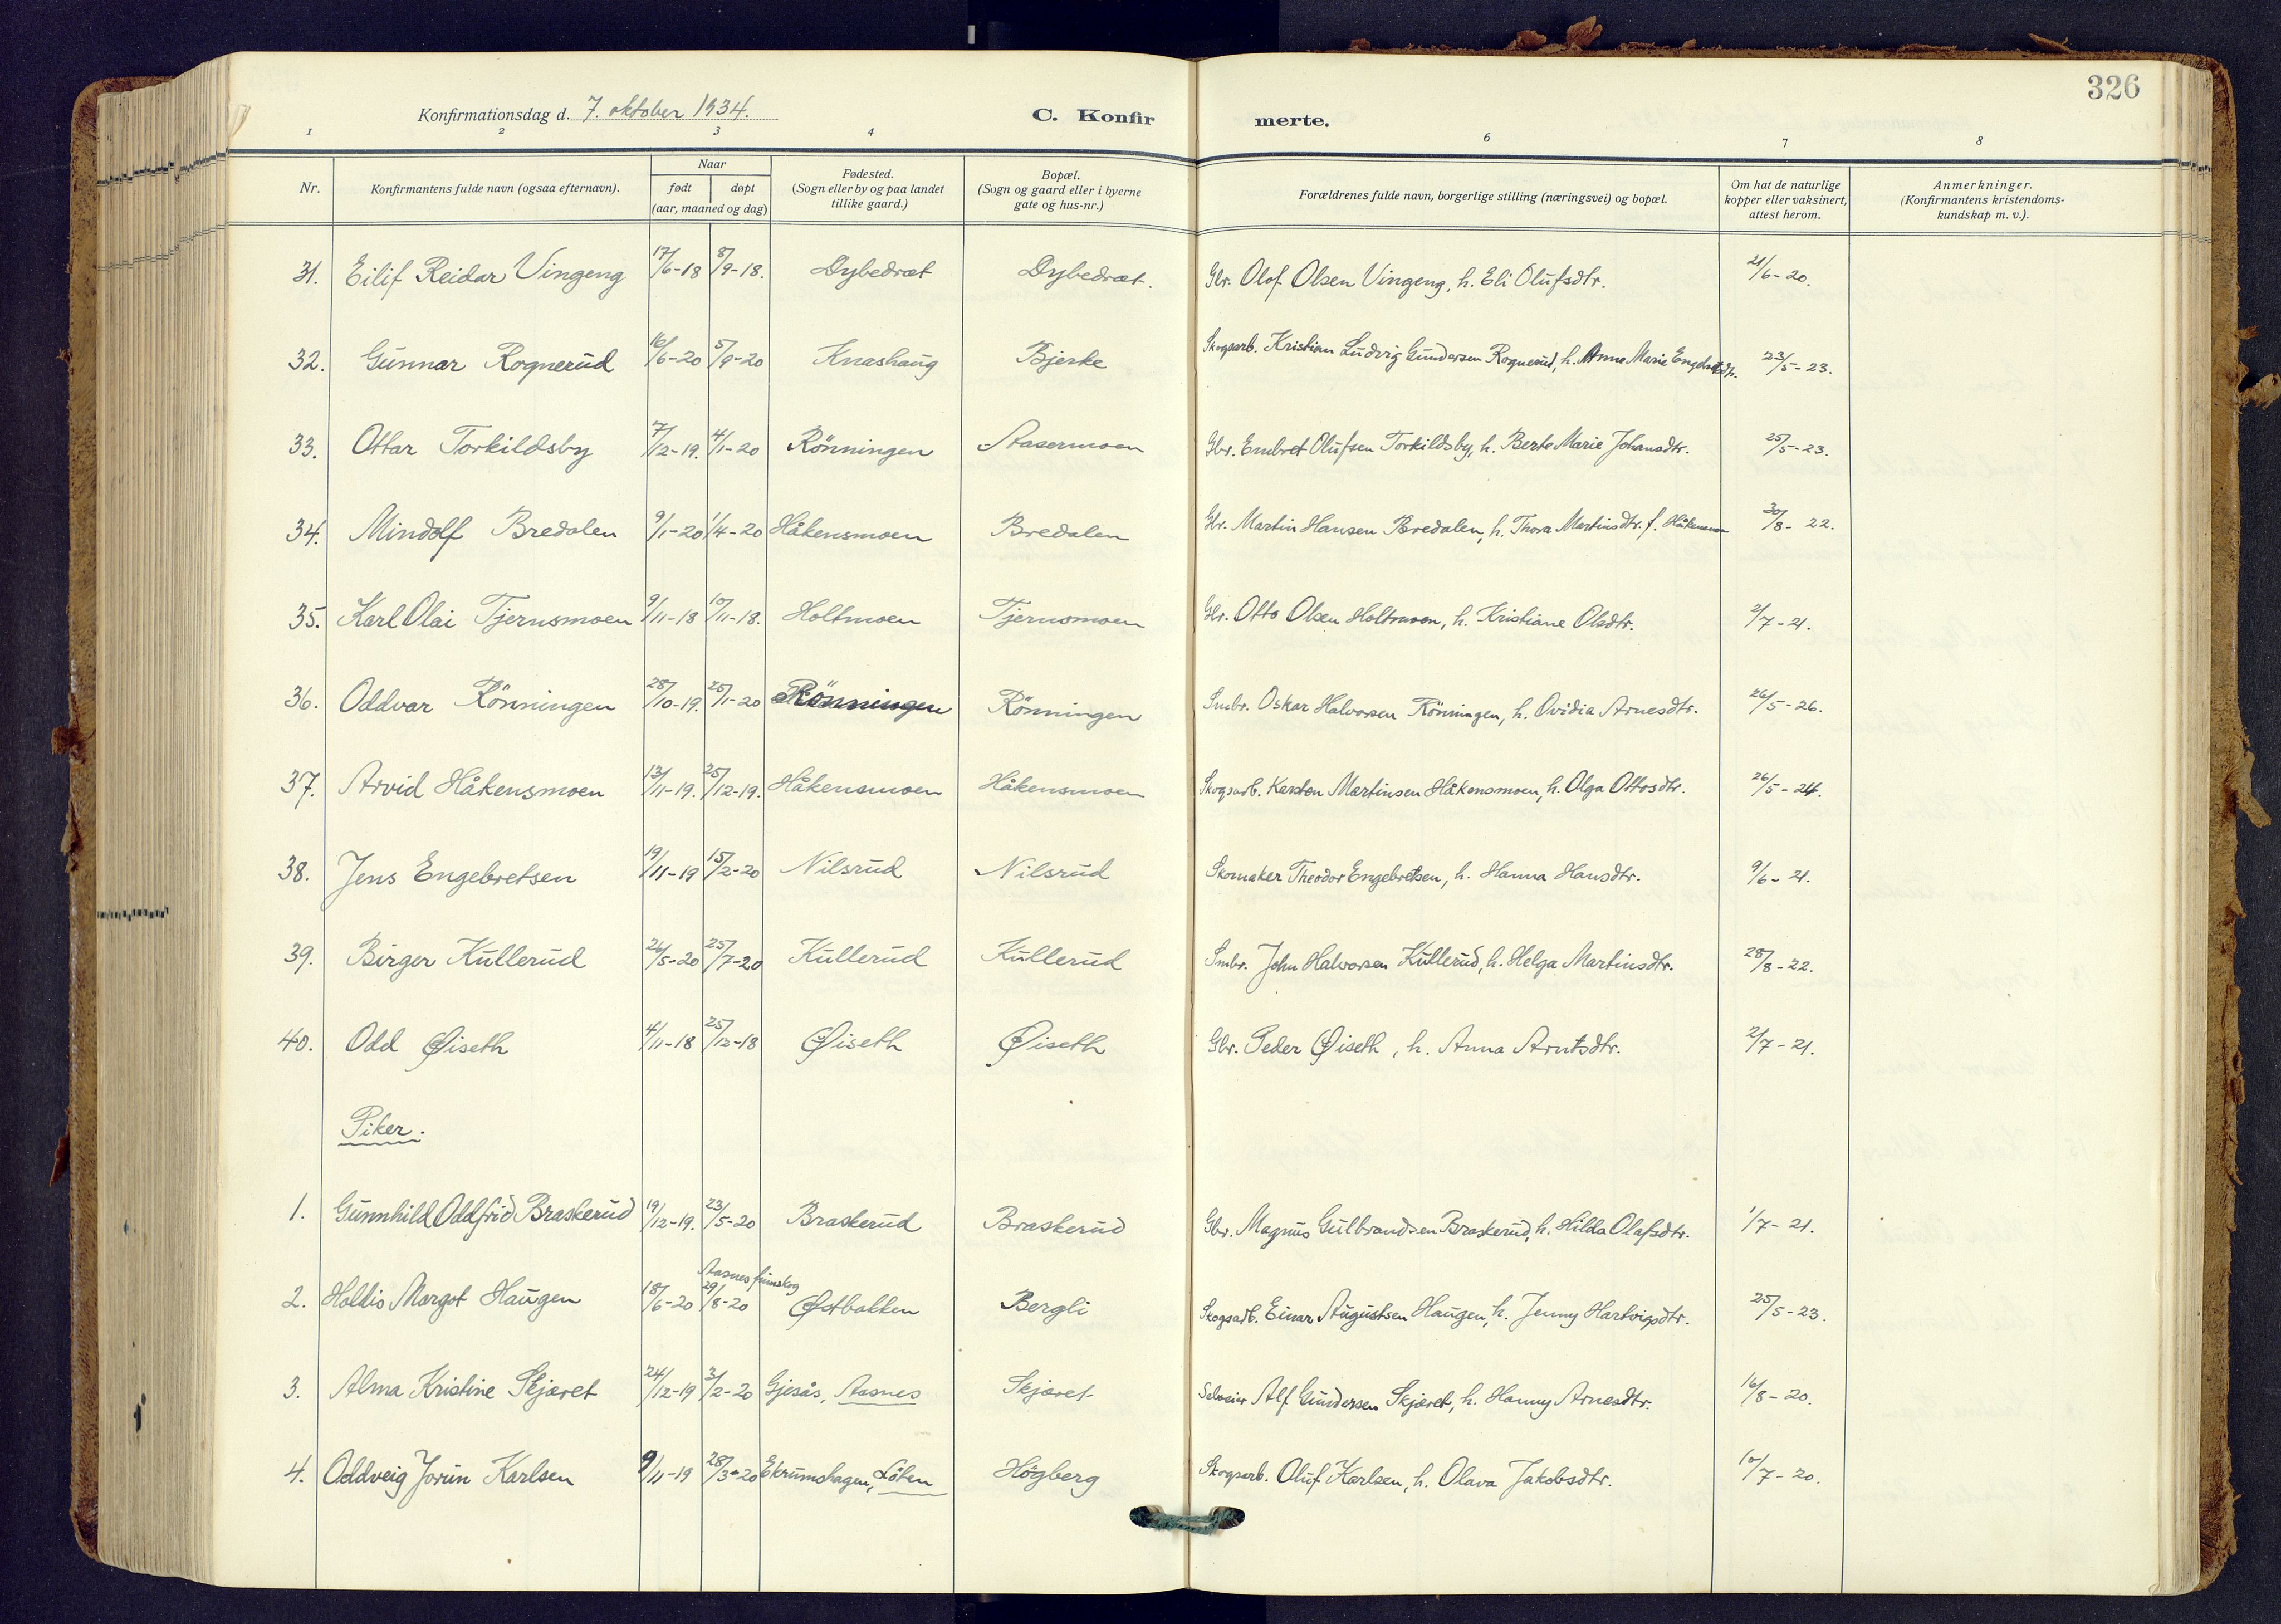 326
Konfirmationsdag d. 7. oktober 1934.
C. Konfir merte.
1 2 3 4 6 7 8
Nr. Konfirmantens fulde navn (ogsaa efternavn). Naar født døpt (aar, maaned og dag) Fødested. (Sogn eller by og paa landet tillike gaard.) Bopæl. (Sogn og gaard eller i byerne gate og hus-nr.) Forældrenes fulde navn, borgerlige stilling (næringsvei) og bopæl. Om hat de naturlige kopper eller vaksinert, attest herom. Anmerkninger. (Konfirmantens kristendoms-kundskap m. v.).
31. Eilif Reidar Vingeng 17/6-18 8/9-18. Dybedræt Dybedræt. Gbr. Olof Olsen Vingeng, h. Eli Olufsdtr. 21/6-20.
32. Gunnar Rognerud 16/6-20 5/9-20 Knashaug Bjerke Skogsarb. Kristian Ludvig Gundersen Rognerud, h. Anna Marie 23/5-23.
33. Ottar Torkildsby 7/12-19. 4/1-20 Rönningen Aasermoen Gbr. Embret Olufsen Torkildsby, h. Berte Marie Johansdtr. 25/5-23.
34. Mindolf Bredalen 9/1-20 1/4-20 Håkensmoen Bredalen Gbr. Martin Hansen Bredalen, h. Thora Martinsdtr. f. Håkensmoen 30/8-22.
35. Karl Olai Tjernsmoen 9/11-18 10/11-18. Holtmoen Tjernsmoen Gbr. Otto Olsen Holtmoen, h. Kristiane Olsdtr. 2/7-21.
36. Oddvar Rönningen 28/10-19. 25/1-20 Rönningen Rönningen Smbr. Oskar Halvorsen Rönningen, h. Ovidia Arnesdtr. 26/5-26.
37. Arvid Håkensmoen 13/11-19. 25/12-19. Håkensmoen Håkensmoen Skogsarb. Karsten Martinsen Håkensmoen, h. Olga Ottosdtr. 26/5-24.
38. Jens Engebretsen 19/11-19 15/2-20 Nilsrud Nilsrud Skomaker Theodor Engebretsen, h. Hanna Hansdtr. 9/6-21.
39. Birger Kullerud 26/5-20 25/7-20 Kullerud Kullerud Smbr. John Halvorsen Kullerud, h. Helga Martinsdtr. 28/8-22.
40. Odd Øiseth 4/11-18 25/12-18 Øiseth Øiseth Gbr. Peder Øiseth, h. Anna Arntsdtr. 2/7-21.
Piker.
1. Gunnhild Oddfrid Braskerud 19/12-19. 23/5-20 Braskerud Braskerud Gbr. Magnus Gulbrandsen Braskerud, h. Hilda Olafsdtr. 1/7-21.
Aasnes finnskog
2. Holdis Margot Haugen 18/6-20 29/8-20 Østbakken Bergli Skogsarb. Einar Augustsen Haugen, h. Jenny Hartvigsdtr. 25/5-23.
3. Alma Kristine Skjæret 24/12-19 3/2-20 Gjesås, Aasnes Skjæret Selveier Alf Gundersen Skjæret, h. Hanny Arnesdtr. 16/8-20.
4. Oddveig Jorun Karlsen 9/11-19 28/3-20 Ekrumshagen, Löten Högberg Skogsarb. Oluf Karlsen, h. Olava Jakobsdtr. 10/7-20.